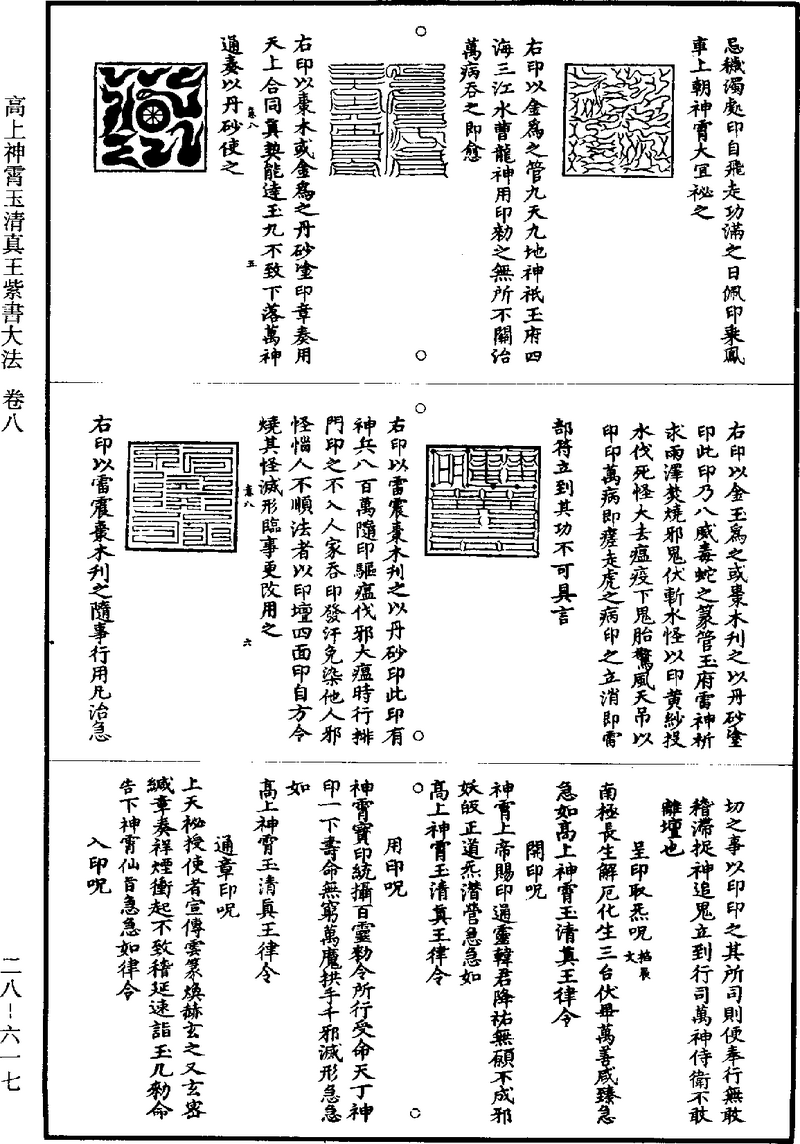 高上神霄玉清真王紫書大法　卷八
二八－六一七
忌穢濁處印自飛走功滿之日佩印乘鳳
車上朝神霄大宜祕之
右印以金為之管九天九地神祇玉府四
海三江水曹龍神用印勑之無所不關治
萬病吞之即愈
右印以棗木或金為之丹砂塗印章奏用
天上合同真契能達玉九不致下落萬神
卷八
五
通奏以丹砂使之
右印以金玉為之或棗木刋之以丹砂塗
印此印乃八威毒蛇之篆管玉府雷神祈
求雨澤焚燒邪鬼伏斬水怪以印黃紗投
水伐死怪大去瘟疫下鬼胎驚風天吊以
印印萬病即瘥走虎之病印之立消即雷
部符立到其功不可具言
右印以雷震棗木刋之以丹砂印此印有
神兵八百萬隨印驅瘟伐邪大瘟時行排
門印之不入人家吞印發汗免染他人邪
怪惱人不順法者以印壇四面印自方令
燒其怪滅形臨事更改用之
卷八
六
右印以雷震棗木刋之隨事行用凡治急
切之事以印印之其所司則便奉行無敢
稽滯捉神追鬼立到行司萬神侍衛不敢
離壇也
呈印取炁呪掐辰文
南極長生解厄化生三台伏畢萬善咸臻急
急如高上神霄玉清真王律令
開印呪
神霄上帝賜印通靈韓君降祐無願不成邪
妖皈正道炁潛營急急如
高上神霄玉清真王律令
用印呪
神霄寶印統攝百靈勑令所行受命天丁神
印一下壽命無窮萬魔拱手千邪滅形急急
如
高上神霄玉清真王律令
通章印呪
上天祕授使者宣傳雲篆煥赫玄之又玄密
緘章奏祥煙衝起不致稽延速詣玉几勑命
告下神霄仙旨急急如律令
入印呪